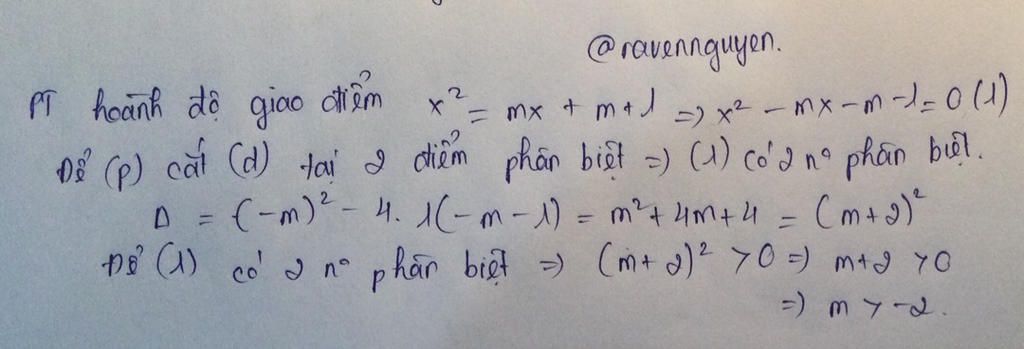 @ravennguyen.
PT hoành độ giao điểm x² = mx + m+1 => x² - mx - m - 1 = 0 (1)
Để (p) cắt (d) tại 2 điểm phân biệt => (1) có 2 nº phân biệt.
Δ = (-m)² - 4. 1(-m - 1) = m² + 4m + 4 = (m+2)²
Để (1) có 2 nº phân biệt => (m+2)² > 0 => m+2 > 0
=> m > -2.